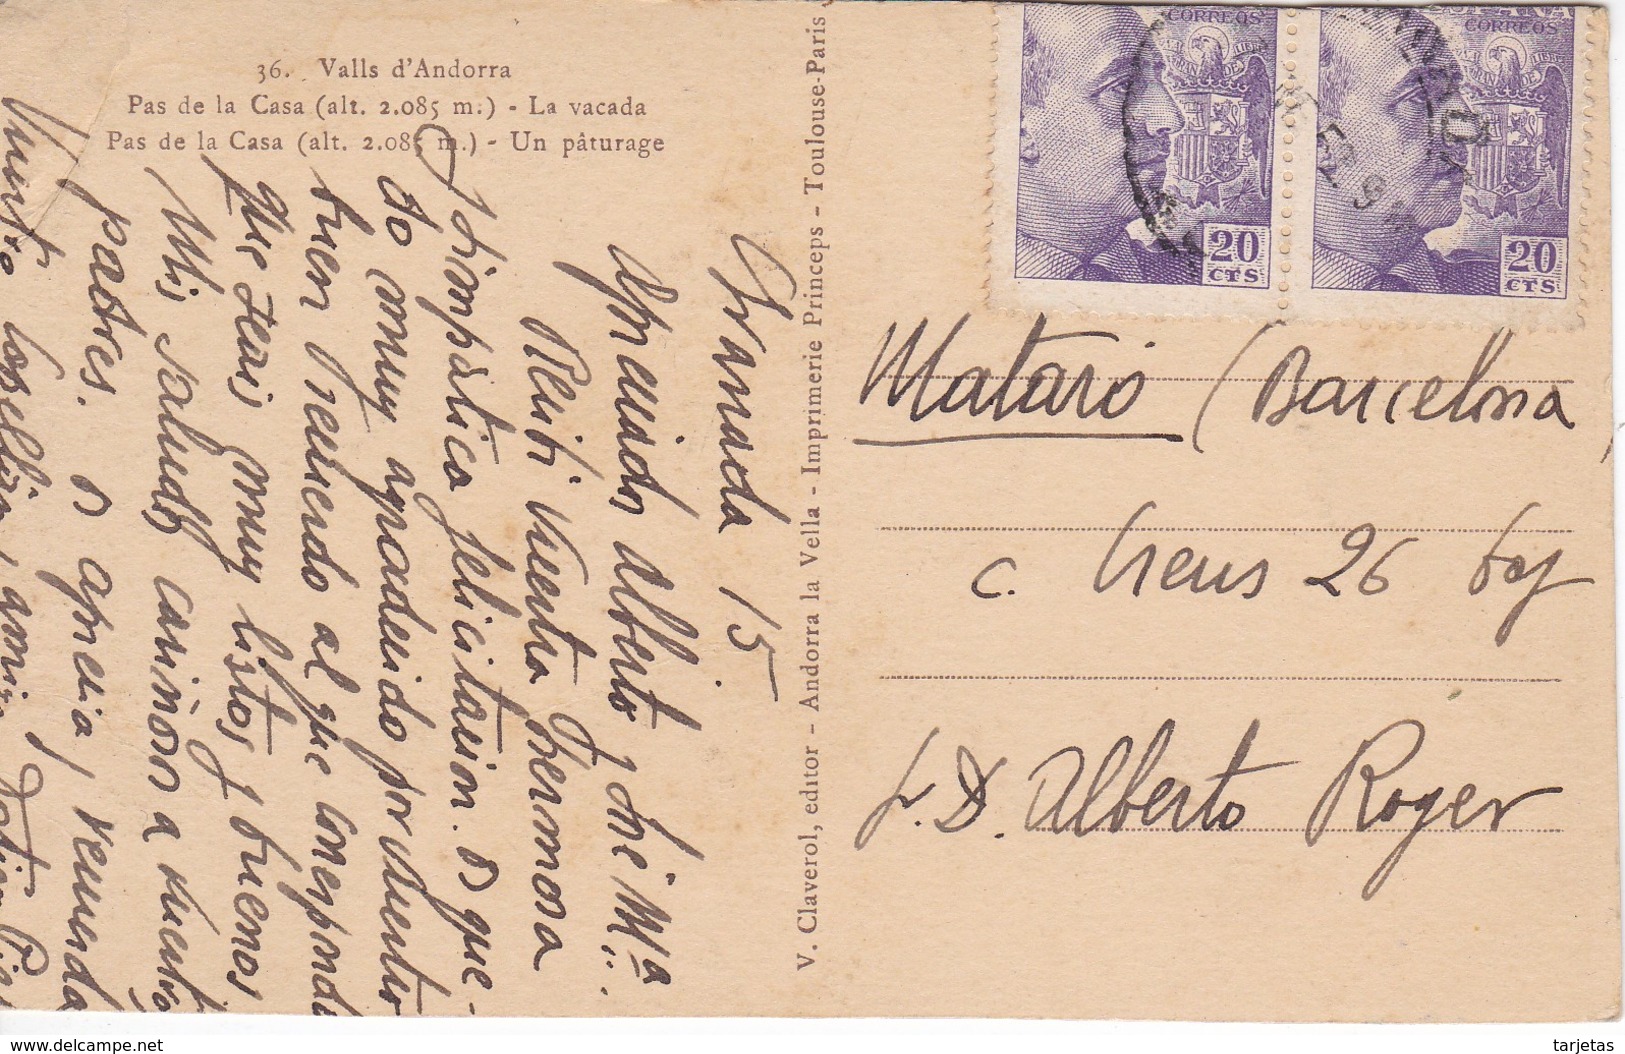 36. Valls d'Andorra
Pas de la Casa (alt. 2.085 m.) - La vacada
Pas de la Casa (alt. 2.085 m.) - Un pâturage
Granada 15
Apreciados Alberto y José Mª:
Recibí vuestra hermosa
y simpática felicitacion. Os que-
do muy agradecido por vuestro
buen recuerdo al que correspondo
que seais muy listos y buenos
Mis saludos cariñosos a vuestros
padres. Os aprecia y recuerda
V. Claverol, editor - Andorra la Vella - Imprimerie Princeps - Toulouse-Paris
CORREOS
20
CTS
CORREOS
20
CTS
Mataró (Barcelona)
c. 26
Sr. D. Alberto Roger
delcampe.net
tarjetas